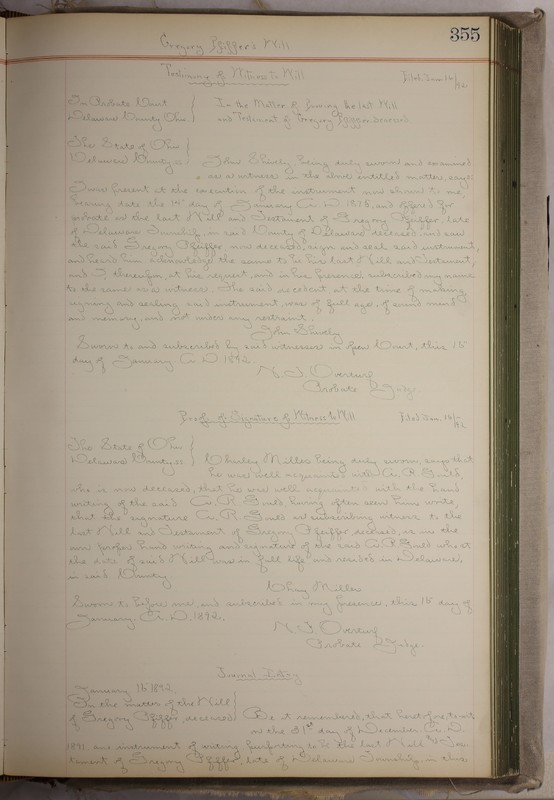 355
Gregory Pfiffer's Will
Testimony of Witness to Will Filed Jan. 16/92
In Probate Court } In the Matter of proving the last Will
Delaware County Ohio } and Testament of Gregory Pfiffer deceased.
The State of Ohio }
Delaware County ss } John Shively, being duly sworn and examined
as a witness in the above entitled matter, says
I was present at the execution of the instrument now shown to me,
bearing date the day of January A. D. 1878, and offered for
probate as the last Will and Testament of Gregory Pfiffer, late
of Delaware Township in said County of Delaware deceased and saw
the said Gregory Pfiffer, now deceased, sign and seal said instrument,
and heard him acknowledge the same to be his last Will and Testament,
and I, thereupon, at his request, and in his presence subscribed my name
to the same as a witness. The said decedent at the time of making
signing and sealing said instrument, was of full age, of sound mind
and memory, and not under any restraint.
John Shively
Sworn to and subscribed by said witnesses in open Court, this 15
day of January A. D. 1892
N. F. Overturf
Probate Judge
Proof of Signature of Witness to Will Filed Jan. 16/92
The State of Ohio }
Delaware County ss } Charley Miller being duly sworn, says that
he was well acquainted with A. R. Gould,
who is now deceased, that he was well acquainted with the hand
writing of the said A. R. Gould having often seen him write
that the signature A. R. Gould as subscribing witness to the
last Will and Testament of Gregory Pfiffer, deceased, is in the
own proper hand writing and signature of the said A. R. Gould who at
the date of said Will was in full life and resided in Delaware,
in said County.
Chay Miller
Sworn to before me, and subscribed in my presence, this 15 day of
January, A. D. 1892.
N. F. Overturf
Probate Judge.
Journal Entry
January 15 1892.
In the matter of the Will
of Gregory Pfiffer, deceased } Be it remembered, that heretofore, to wit
on the 31st day of December A. D.
1891, an instrument of writing purporting to be the last Will and Tes-
tament of Gregory Pfiffer, late of Delaware Township, in this